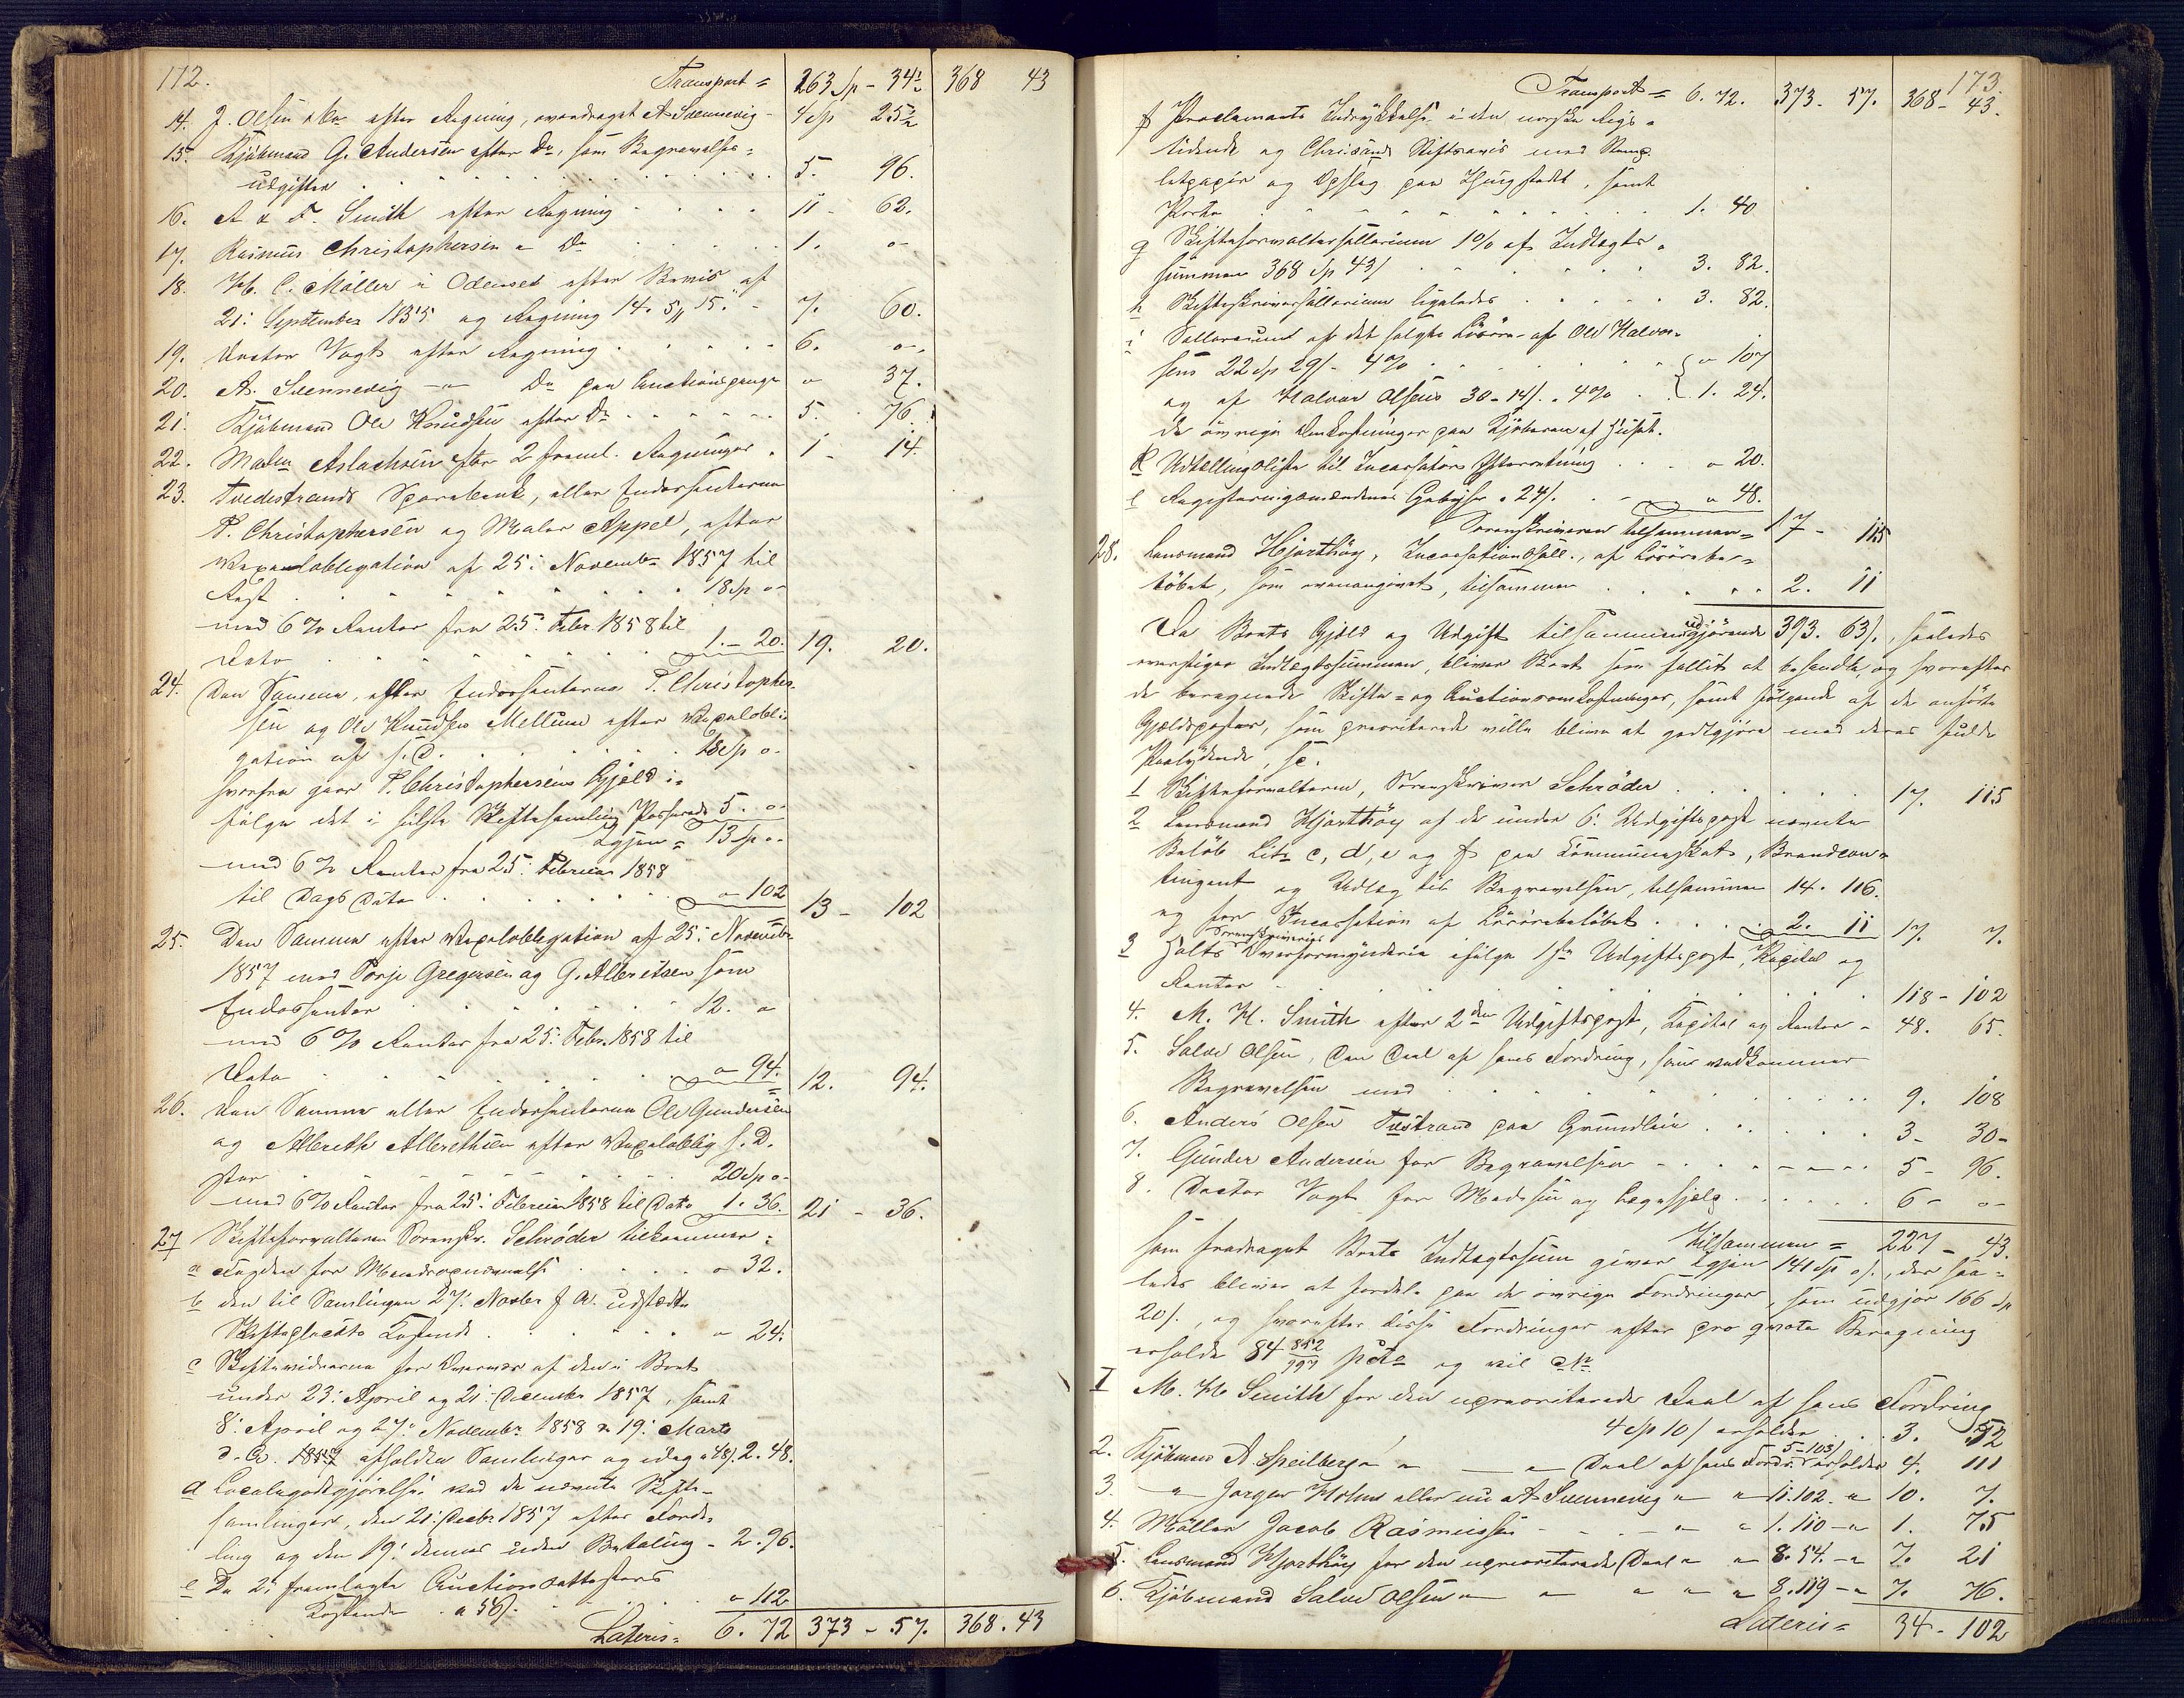 172.
Transport = 263 Sp - 34½ 368 43
14. J. Olsen & Co efter Regning, overdraget A Svennevig - 4 Sp 25½
15. Kjøbmand G. Andersen efter Do, som Begravelses=
udgifter . . . 5. 96.
16. A & F. Smith efter Regning . . . 11 - 62.
17. Rasmus Christophersen " Do . . . 1. o-
18. H. C. Møller i Odensed efter Bevis af
21: September 1855 og Regning 14. 5, 15. - 7. 60.
19. Doctor Vogt efter Regning . . . 6. o-
20. A. Svennevig —"— Do paa Auctionspenge " 37.
21. Kjøbmand Ole Knudsen efter Do . . . 5. 76.
22. Maden Aslachsen efter 2 freml. Regninger . 1 - 14.
23. Tvedestrands Sparebank, eller Endossenterne
P. Christophersen og Maler Appel, efter
Vexelobligation af 25: Novembr 1857 til
Rest . . . 18 Sp o-
med 6 % Renter fra 25: Febr. 1858 til
Dato . . . 1. - 20. 19. 20.
24. Den Samme, eller Endossenterne P. Christopher-
sen og Ole Knudsen Mellum efter Vexelobli-
gation af s. D. . . . 18 Sp o-
hvorfra gaar P. Christophersens Gjæld i-
følge det i sidste Skiftesamling Passerede 5. o-
Igjen = 13 Sp o-
med 6 % Renter fra 25: Februar 1858
til Dags Dato . . . " 102 13 - 102
25. Den Samme efter Vexelobligation af 25: Novembr
1857 med Terje Gregersen og G. Albretsen som
Endossenter . . . 12. o
med 6 % Renter fra 25: Febr. 1858 til
Dato . . . " 94. 12. 94.
26. Den Samme eller Endossenterne Ole Gundersen
og Albreth Albrethsen efter Vexeloblig s. D.
stor . . . 20 Sp o-
med 6 % Renter fra 25: Februar 1858 til Dato 1. 36. 21 - 36.
27 Skifteforvalteren Sorenskr. Schrøder tilkommer:
a Fogden for Mændsopnævnelse . . . " 32.
b den til Samlingen 27: Novbr f. A. udstædte
Skifteplacats Kostende . . . " 24.
c Skiftevidnerne for Overvær af den i Boet
under 23: April og 21: December 1857, samt
8: April og 27: November 1858 & 19: Marts
d. A. 1859 afholdte Samlinger og idag a 48/. 2. 48.
d Localegodtgjørelse ved de nævnte Skifte-
samlinger, den 21: Decbr 1857 efter Forde-
ling og den 19: dennes uden Betaling - 2. 96.
e De 2: fremlagte Auctionsattesters
Kostende . a 56/. . . " 112
Lateris = 6. 72 373 - 57. 368. 43
173.
Transport = 6. 72. 373. 57. 368 - 43.
f Proclamaets Indrykkelse i den norske Rigs-
tidende og Chrisands Stiftsavis med Stemp-
letpapir og Opslag paa Thingstedet, samt
Porto . . . 1. 40
g Skifteforvaltersallarium 1% af Indtægts-
summen 368 Sp 43/ . . . 3. 82.
h Skifteskriversallarium ligeledes . . . 3. 82.
i Sallarium af det solgte Løsøre af Ole Halvor-
sens 22 Sp 29/ - 4% . . . " 107
og af Halvor Olsens 30 - 14/. . 4% . . 1. 24.
De øvrige Omkostninger paa Kjøberen af Huset.
k Udtællingsliste til Incassators Efterretning . . " 20.
l Registeringsmændenes Gebyhr a 24/. . - " 48.
Sorenskriveren tilsammen = 17 - 115
28. Lensmand Hjorthøy, Incassationssall., af Løsørebe-
løbet, som ovenangivet, tilsammen . . . 2. 11
Da Boets Gjæld og Udgift tilsammen udgjørende 393. 63/., saaledes
overstiger Indtægtssummen, bliver Boet som fallit at behandle, og hvorefter
de beregnede Skifte- og Auctionsomkostninger, samt følgende af de anførte
Gjældsposter, som prioriterede ville blive at godtgjøre med deres fulde
Paalydende, sc.
1 Skifteforvalteren, Sorenskriver Schrøder . . . 17. 115
2 Lensmand Hjorthøy af de under 6: Udgiftspost nævnte
Beløb Litr c, d, e og f paa Communeskat, Brandcon-
tingent og Udlæg til Begravelsen, tilsammen 14. 116.
og for Incassation af Løsørebeløbet . . . 2. 11 17. 7.
3 Holts Sorenskriveries Overformynderie ifølge 1ste Udgiftspost, Kapital og
Renter - . . . 118 - 102
4. M. H. Smith efter 2den Udgiftspost, Kapital og Renter - 48. 65.
5. Salve Olsen, den Deel af hans Fordring, som vedkommer
Begravelsen med . . . 9. 108
6. Anders Olsen Tvestrand paa Grundleie . . . 3 - 30 -
7. Gunder Andersen for Begravelsen - . . . 5 - 96.
8. Doctor Vogt for Medicin og Lægehjælp . . . 6 - o -
Tilsammen = 227 - 43.
som fradraget Boets Indtægtssum giver Igjen 141 Sp o/., der saa-
ledes bliver at fordele paa de øvrige Fordringer, som udgjør 166 Sp
20/., og hvorefter disse Fordringer efter pro qvota Beregning
erholde 84 852/997 pCt. og vil
I M. H. Smith for den uprioriterede Deel af hans Fordring
4 Sp 10/ erholder . . . 3. 52
2. Kjøbmand A. Speilberg " " — " Deel af hans Fordr. 5 - 103/ erholder 4. 111
3. " Jørgen Holm eller nu A Svennevig " " 11. 102. " 10. 7.
4. Møller Jacob Rasmussen - - . - " " 1. 110 - " 1. 75
5. Lensmand Hjorthøy for den uprioriterede Deel " " 8. 54. - " 7. 21
6. Kjøbmand Salve Olsen " — " " " " 8. 119 - " 7. 76.
Lateris = 34 - 102